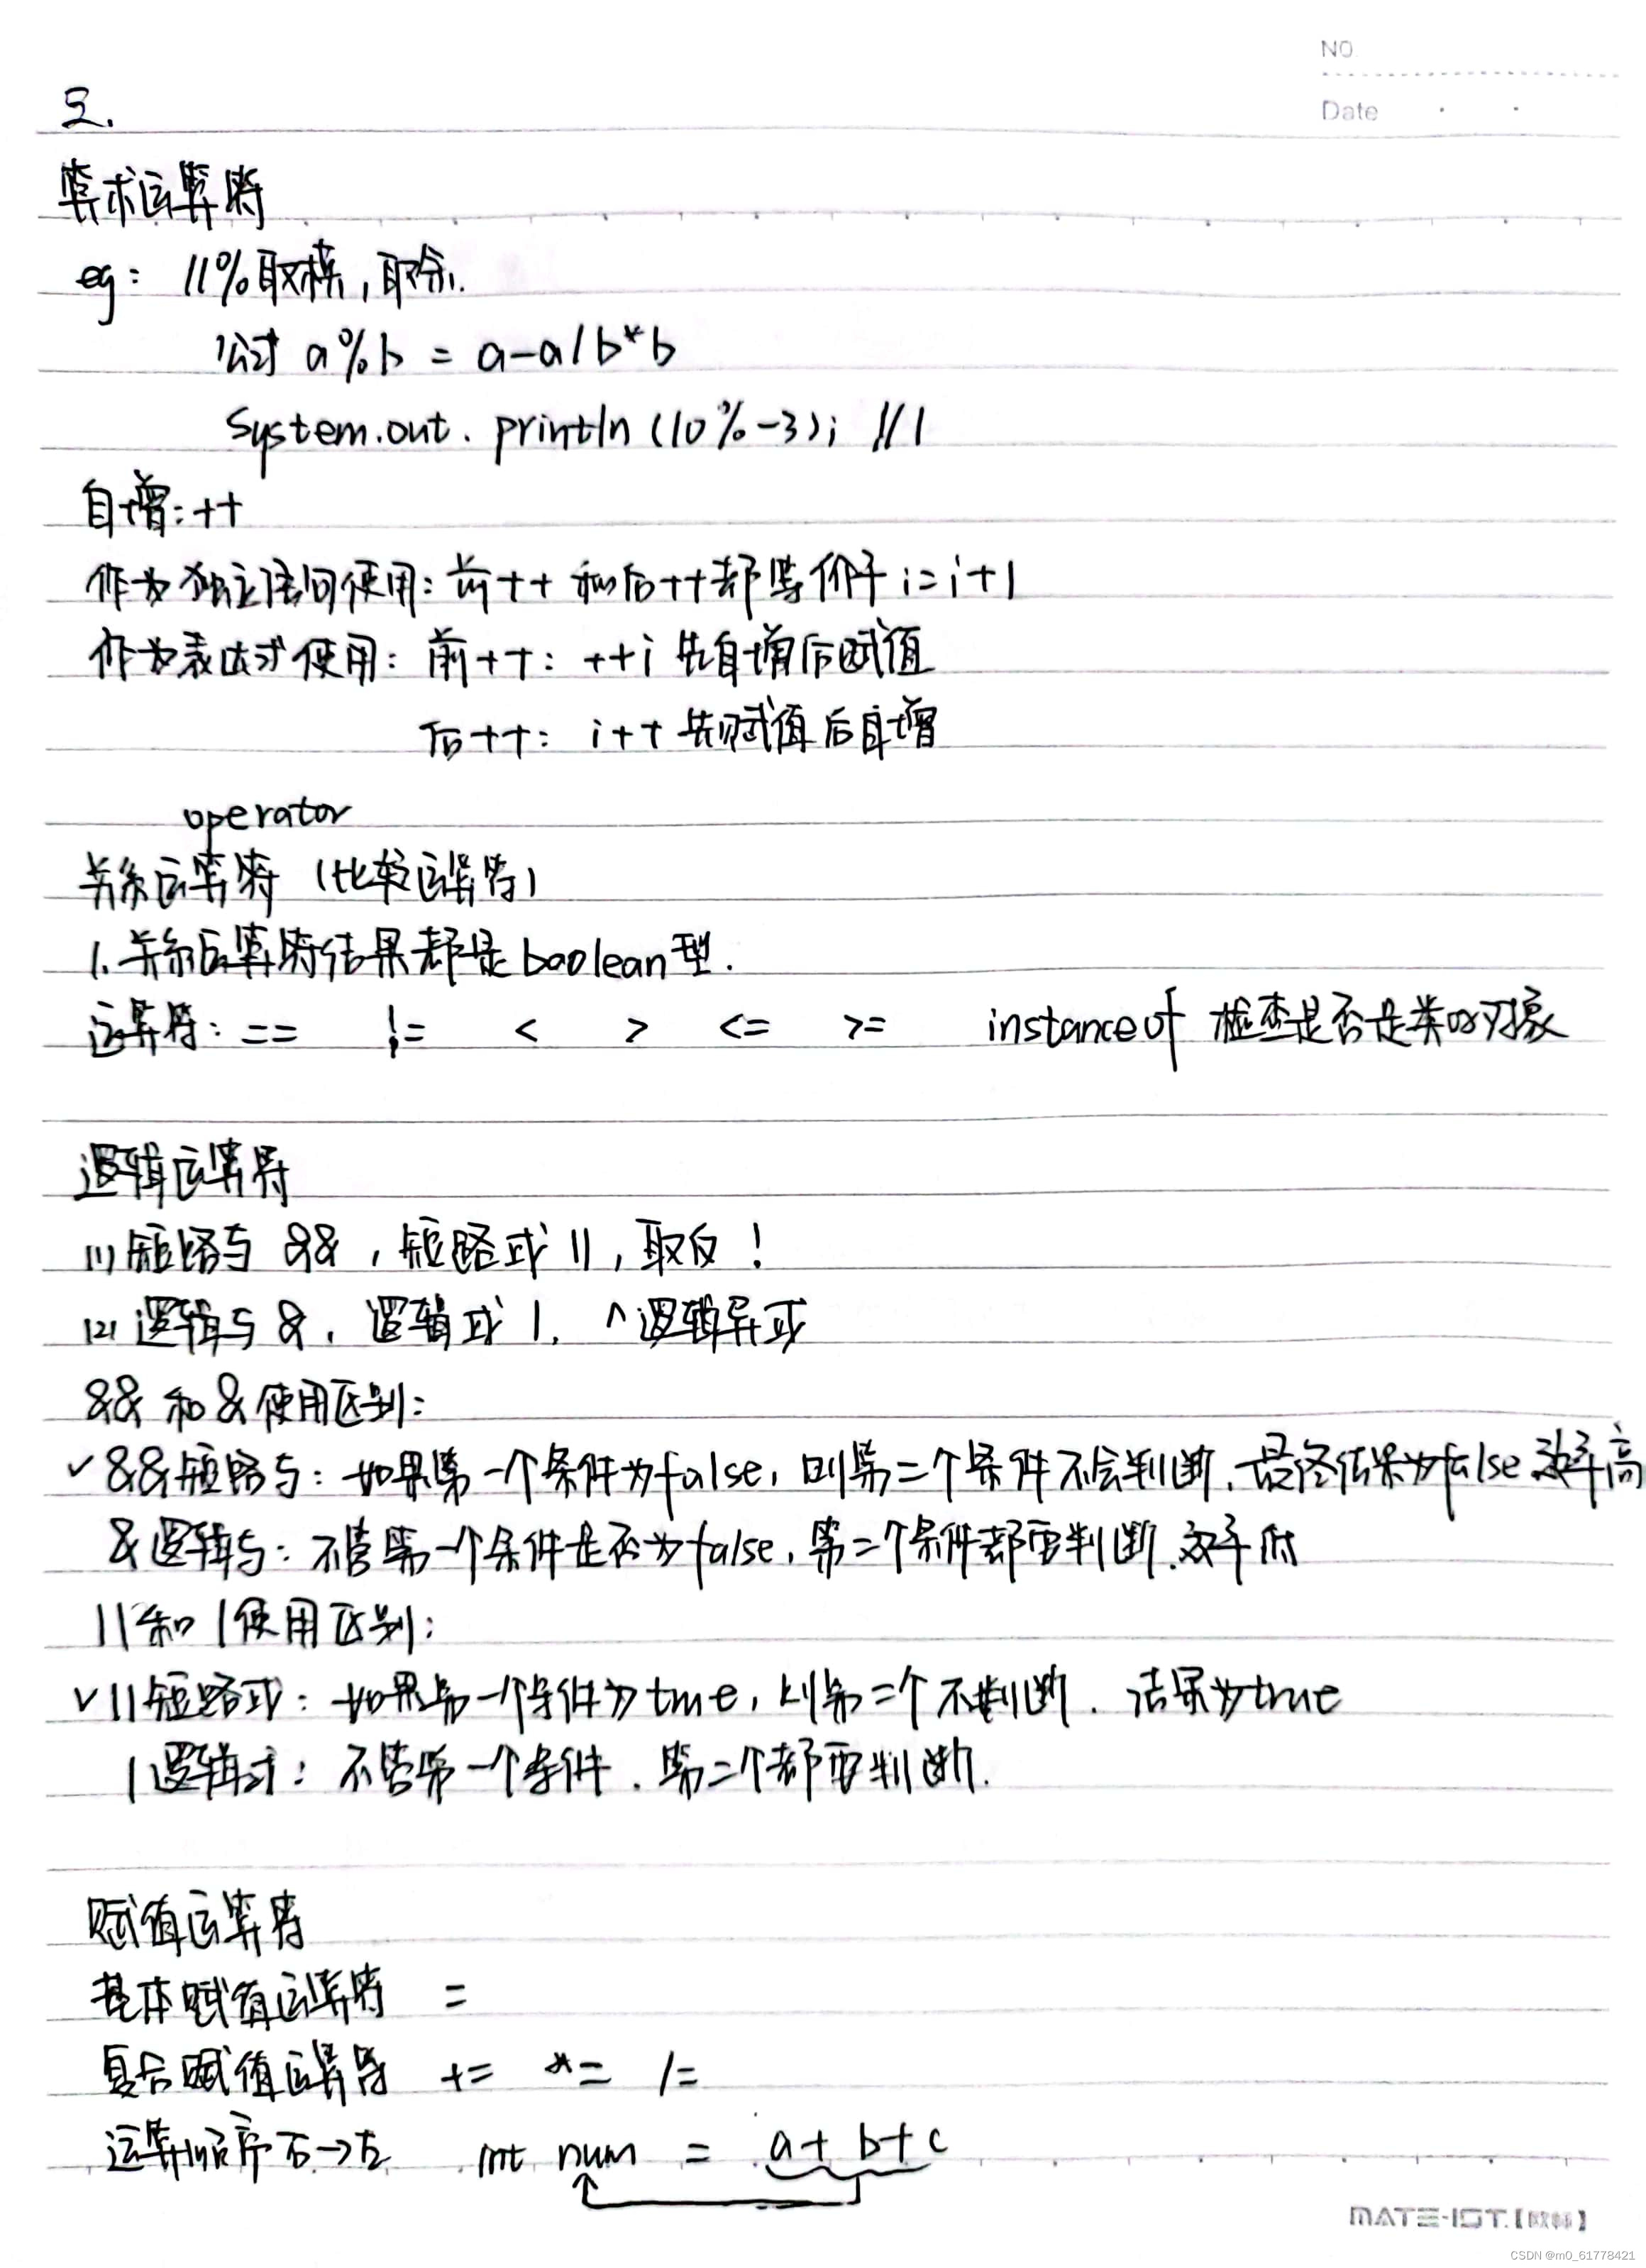 NO.
Date
2.
算术运算符
eg: //%取模,取余.
公式 a%b = a-a/b*b
System.out.println(10%-3); //1
自增:++
作为独立语句使用:前++和后++都等价于i=i+1
作为表达式使用:前++:++i先自增后赋值
后++:i++先赋值后自增
operator
关系运算符(比较运算符)
1.关系运算符结果都是boolean型.
运算符:== != < > <= >= instanceof 检查是否是类的对象
逻辑运算符
(1)短路与 &&,短路或 ||,取反!
(2)逻辑与 &,逻辑或 |. ^逻辑异或
&& 和 & 使用区别:
✓&&短路与:如果第一个条件为false,则第二个条件不会判断.最终结果为false 效率高
&逻辑与:不管第一个条件是否为false,第二个条件都要判断.效率低
||和|使用区别:
✓||短路或:如果第一个条件为true,则第二个不判断.结果为true
|逻辑或:不管第一个条件.第二个都要判断.
赋值运算符
基本赋值运算符 =
复合赋值运算符 += *= /=
运算顺序右→左 int num = a+b+c
MATE-IST.【欧标】
CSDN @m0_61778421